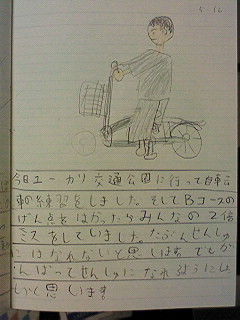 5.16
今日ユーカリ交通公園に行って自転
車の練習をしました。そしてBコースの
げんきをはかったらみんなの2倍
ミスをしていました。たぶんせんしゅ
にはなれないと思います。でもが
んばってせんしゅになれるようにした
いと思います